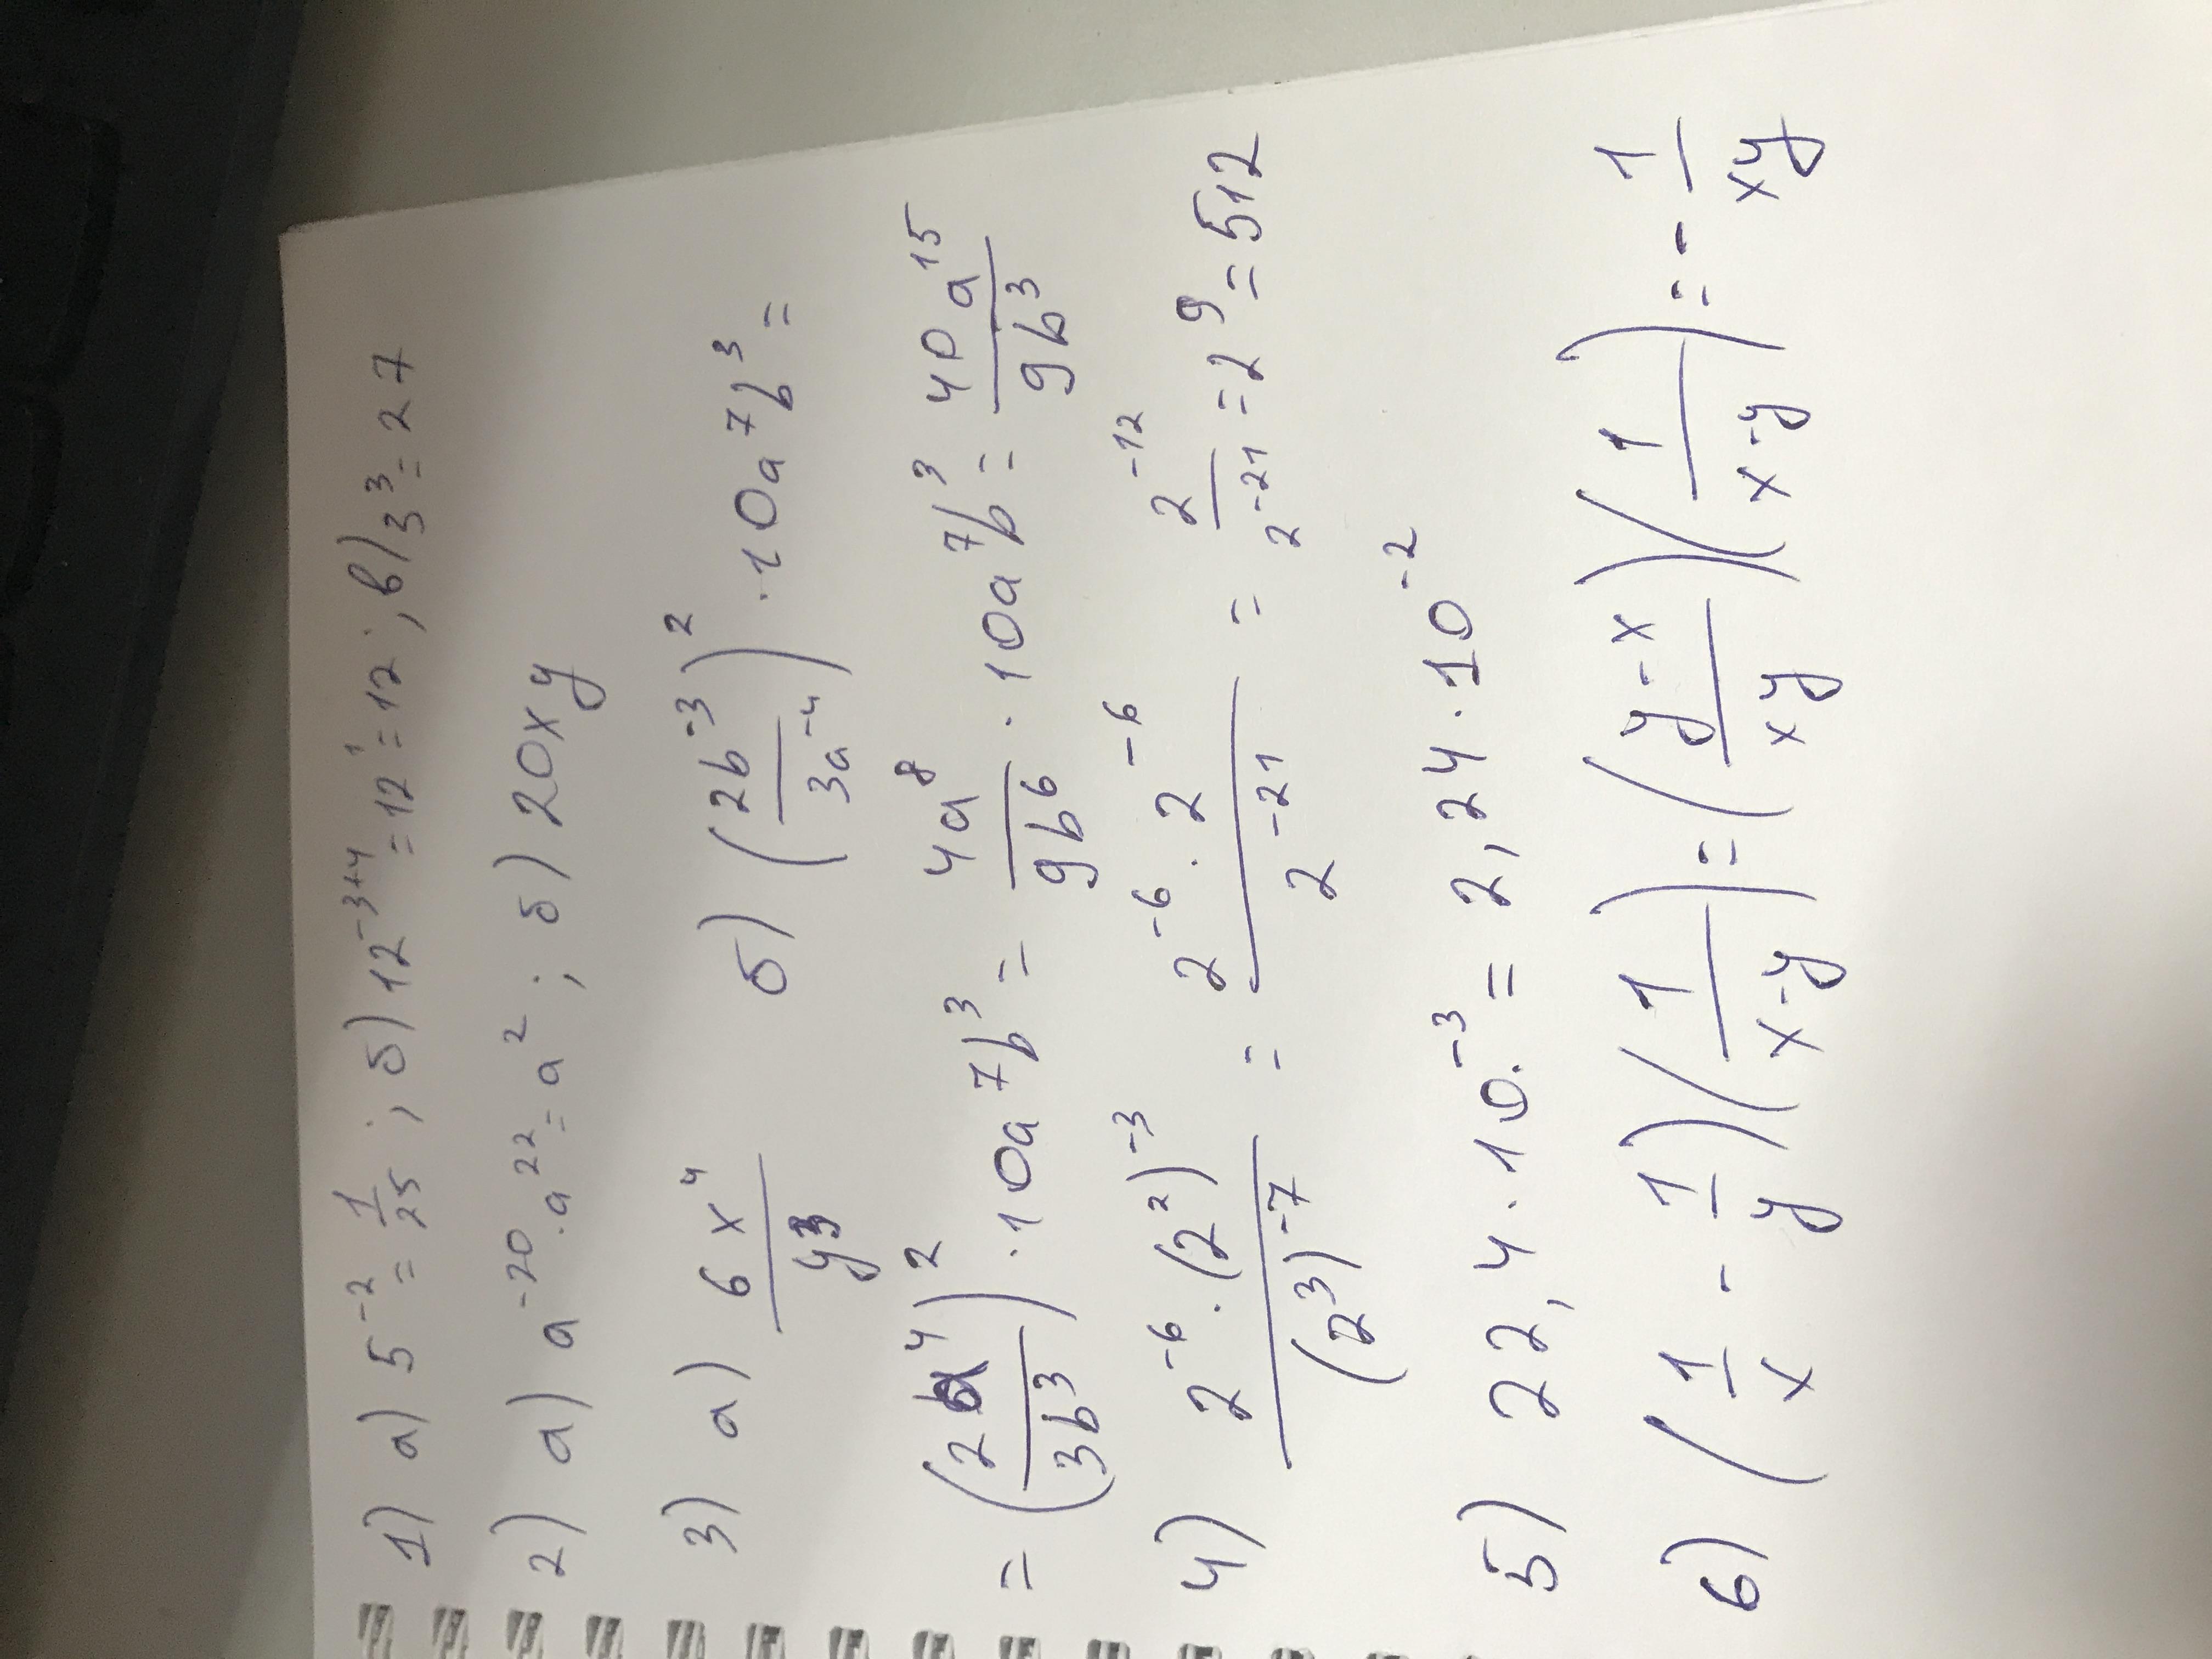 1) а) 5⁻² = 1/25 ; б) 12⁻³⁺⁴ = 12¹ = 12 ; в) 3³ = 27
2) а) a⁻²⁰ · a²² = a² ; б) 20xy
3) а) 6x⁴/y³ б) (2b⁻³/3a⁻⁴)² · 10a⁷b³ =
= (2a⁴/3b³)² · 10a⁷b³ = 4a⁸/9b⁶ · 10a⁷b³ = 40a¹⁵/9b³
4) 2⁻⁶ · (2²)⁻³/(2³)⁻⁷ = 2⁻⁶ · 2⁻⁶/2⁻²¹ = 2⁻¹²/2⁻²¹ = 2⁹ = 512
5) 22,4 · 10⁻³ = 2,24 · 10⁻²
6) (1/x - 1/y)(1/(x-y)) = ((y-x)/xy)(1/(x-y)) = - 1/xy